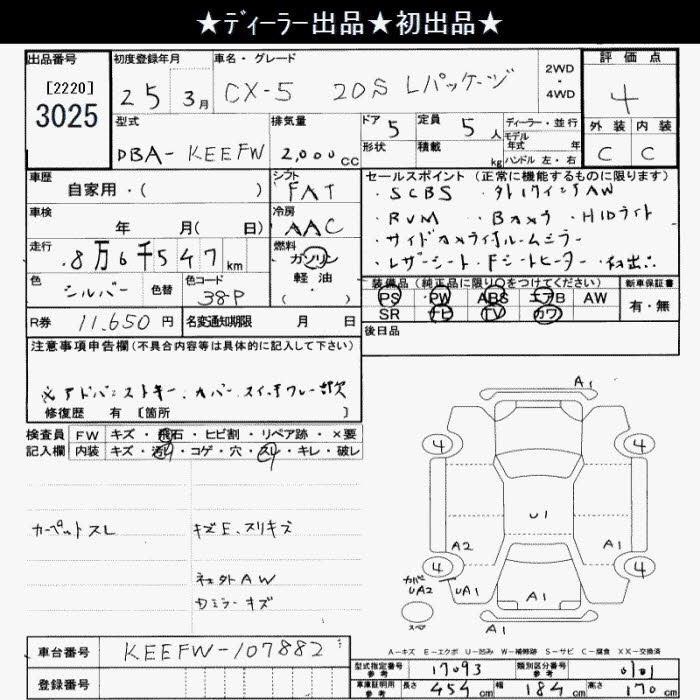 ★ディーラー出品★初出品★
出品番号 初度登録年月 車名・グレード 2WD・4WD 評価点
[2220]
3025 25 3月 CX-5 20S Lパッケージ 4
型式 排気量 ドア 5 定員 5人 ディーラー・並行 外装 内装
DBA-KEEFW 2,000cc 形状 積載 kg モデル年式 年 C C
ハンドル 左・右
車歴 シフト セールスポイント(正常に機能するものに限ります)
自家用・( ) FAT ・SCBS ・外17インチAW
車検 冷房 ・RVM ・Bカメラ ・HIDライト
年 月( 日) AAC ・サイドカメラ付ルームミラー
走行 8万6千547km 燃料 ・レザーシート・Fシートヒーター
ガソリン
軽油
( )
色 シルバー 色替 色コード 38P 装備品(純正品に限り○をつけてください) 新車保証書
PS PW ABS エアB AW 有・無
R券 11,650円 名変通知期限 月 日 SR ナビ TV カワ
注意事項申告欄(不具合内容等は具体的に記入して下さい) 後日品
※アドバンストキー、カバー、スイッチフレー部欠
修復歴 有 [箇所 ]
検査員 FW キズ・飛石・ヒビ割・リペア跡・×要
記入欄 内装 キズ・汚れ・コゲ・穴・スレ・キレ・破レ
カーペットスレ キズE、スリキズ
社外AW
ミラーキズ
A1
4 4
U1
A2 A1
4 4
カバー UA2 UA1 A1 UA1
スペア
A1
A-キズ E-エクボ U-凹み W-補修跡 S-サビ C-腐食 XX-交換済
車台番号 KEEFW-107882
型式指定番号 参考 17093 類別区分番号 参考 0101
登録番号 車庫証明用 参考 長さ 454cm 幅 184cm 高さ 170cm